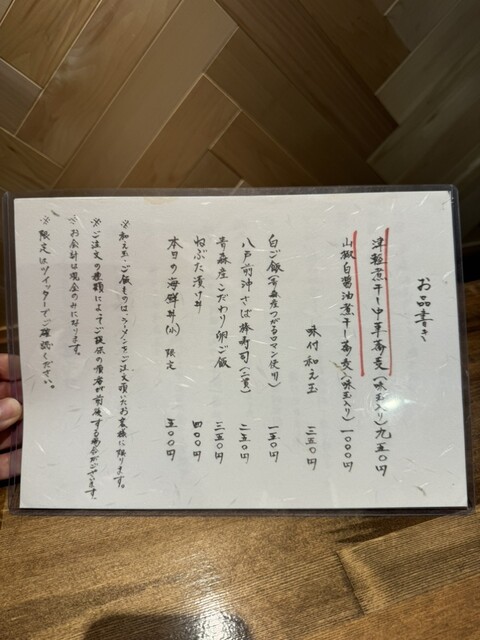 お品書き
津軽煮干し中華蕎麦(味玉入り)九五〇円
山椒白醤油煮干し蕎麦(味玉入り)一〇〇〇円
味付和え玉 三五〇円
白ご飯(青森産つがるロマン使用)一五〇円
八戸前沖さば棒寿司(二貫)二五〇円
青森産こだわり卵ご飯 三五〇円
ねぶた漬け丼 四〇〇円
本日の海鮮丼(小)限定 五〇〇円
※和え玉、ご飯ものはラーメンをご注文頂いたお客様に限ります。
※ご注文の種類によってご提供の順番が前後する場合がございます。
※お会計は現金のみになります。
※限定はツイッターでご確認ください。